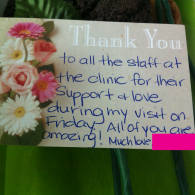 Thank You
to all the staff at
the clinic for their
Support & love
during my visit on
Friday. All of you are
amazing! Much love